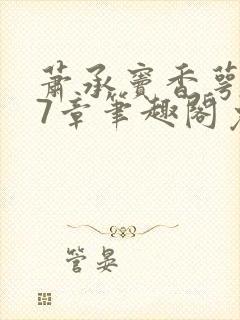 萧承窦香萼
7章笔趣阁
管晏